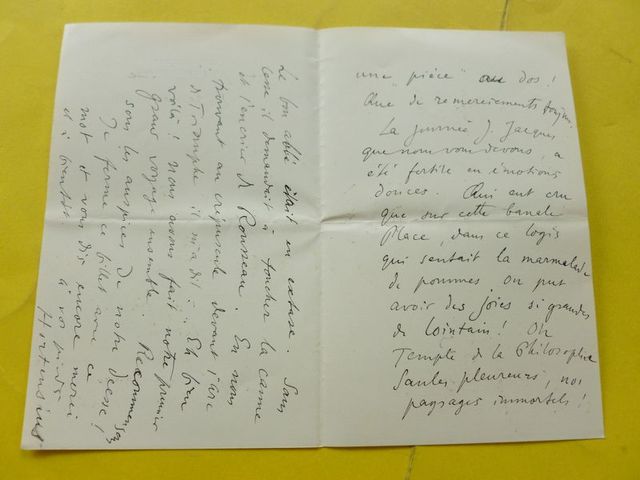 une "pièce" au dos !
Que de remerciements toujours
La journée J. Jacques
que nous vous devons, a
été fertile en émotions
douces. Qui eut cru
que sur cette banale
Place, dans ce logis
qui sentait la marmelade
de pommes on put
avoir des joies si grandes
de lointain ! Oh
Temple de la Philosophie
Saules pleureurs, nos
paysages immortels !
Le bon abbé était en extase. Sans
cesse il demandait à toucher la canne
et l'encrier de Rousseau. En nous
trouvant au crépuscule devant l'arc
de Triomphe il m'a dit : Eh bien
voilà ! nous avons fait notre premier
grand voyage ensemble. Recommençons
sous les auspices de notre déesse !
Je ferme ce billet avec ce
mot et vous dis encore merci
et à bientôt à vos pieds
Hortensius